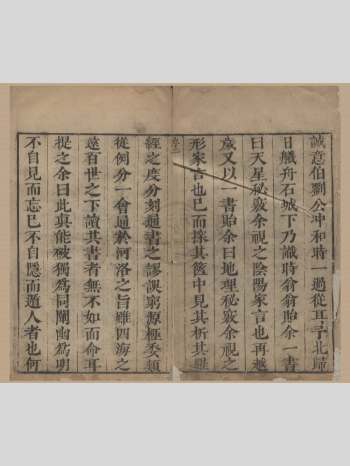 誠意伯劉公冲和時一過從且予北歸
日艤舟石城下乃識時翁翁貽余一書
曰天星秘竅余視之陰陽家言也再越
歲又以一書貽余曰地理秘竅余視之
形家言也已而探其篋中見其析其
經之度分刻通書之謬誤窮源極委類
從例分一會通於河洛之旨雖四海之
遠百世之下讀其書者無不如面命耳
提之余曰此真能被獨為同闡幽為明
不自見而忘已不自隱而遁人者也何